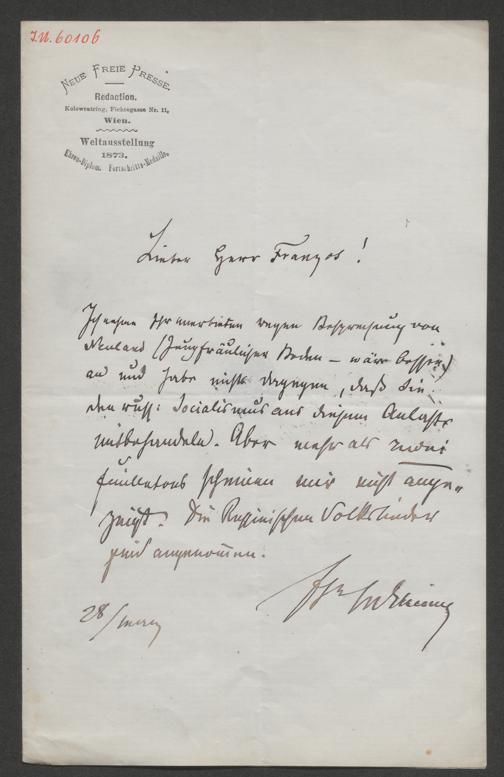 I.N. 60106
NEUE FREIE PRESSE.
Redaction.
Kolowratring, Fichtegasse Nr. 11,
Wien.
Weltausstellung
1873.
Ehren-Diplom. Fortschritts-Medaille.
Lieber Herr Franzos!
Ich nehme Ihr anerbieten wegen Besprechung von
Neuland (Jungfräulicher Boden – wäre besser)
an und habe nichts dagegen, daß Sie
den russ: Socialismus aus diesem Anlaße
mitbehandeln. Aber mehr als zwei
feuilletons scheinen mir nicht ange„
zeigt. Die Rußinischen Volkslieder
sind angenom̅en.
Ihr
28/